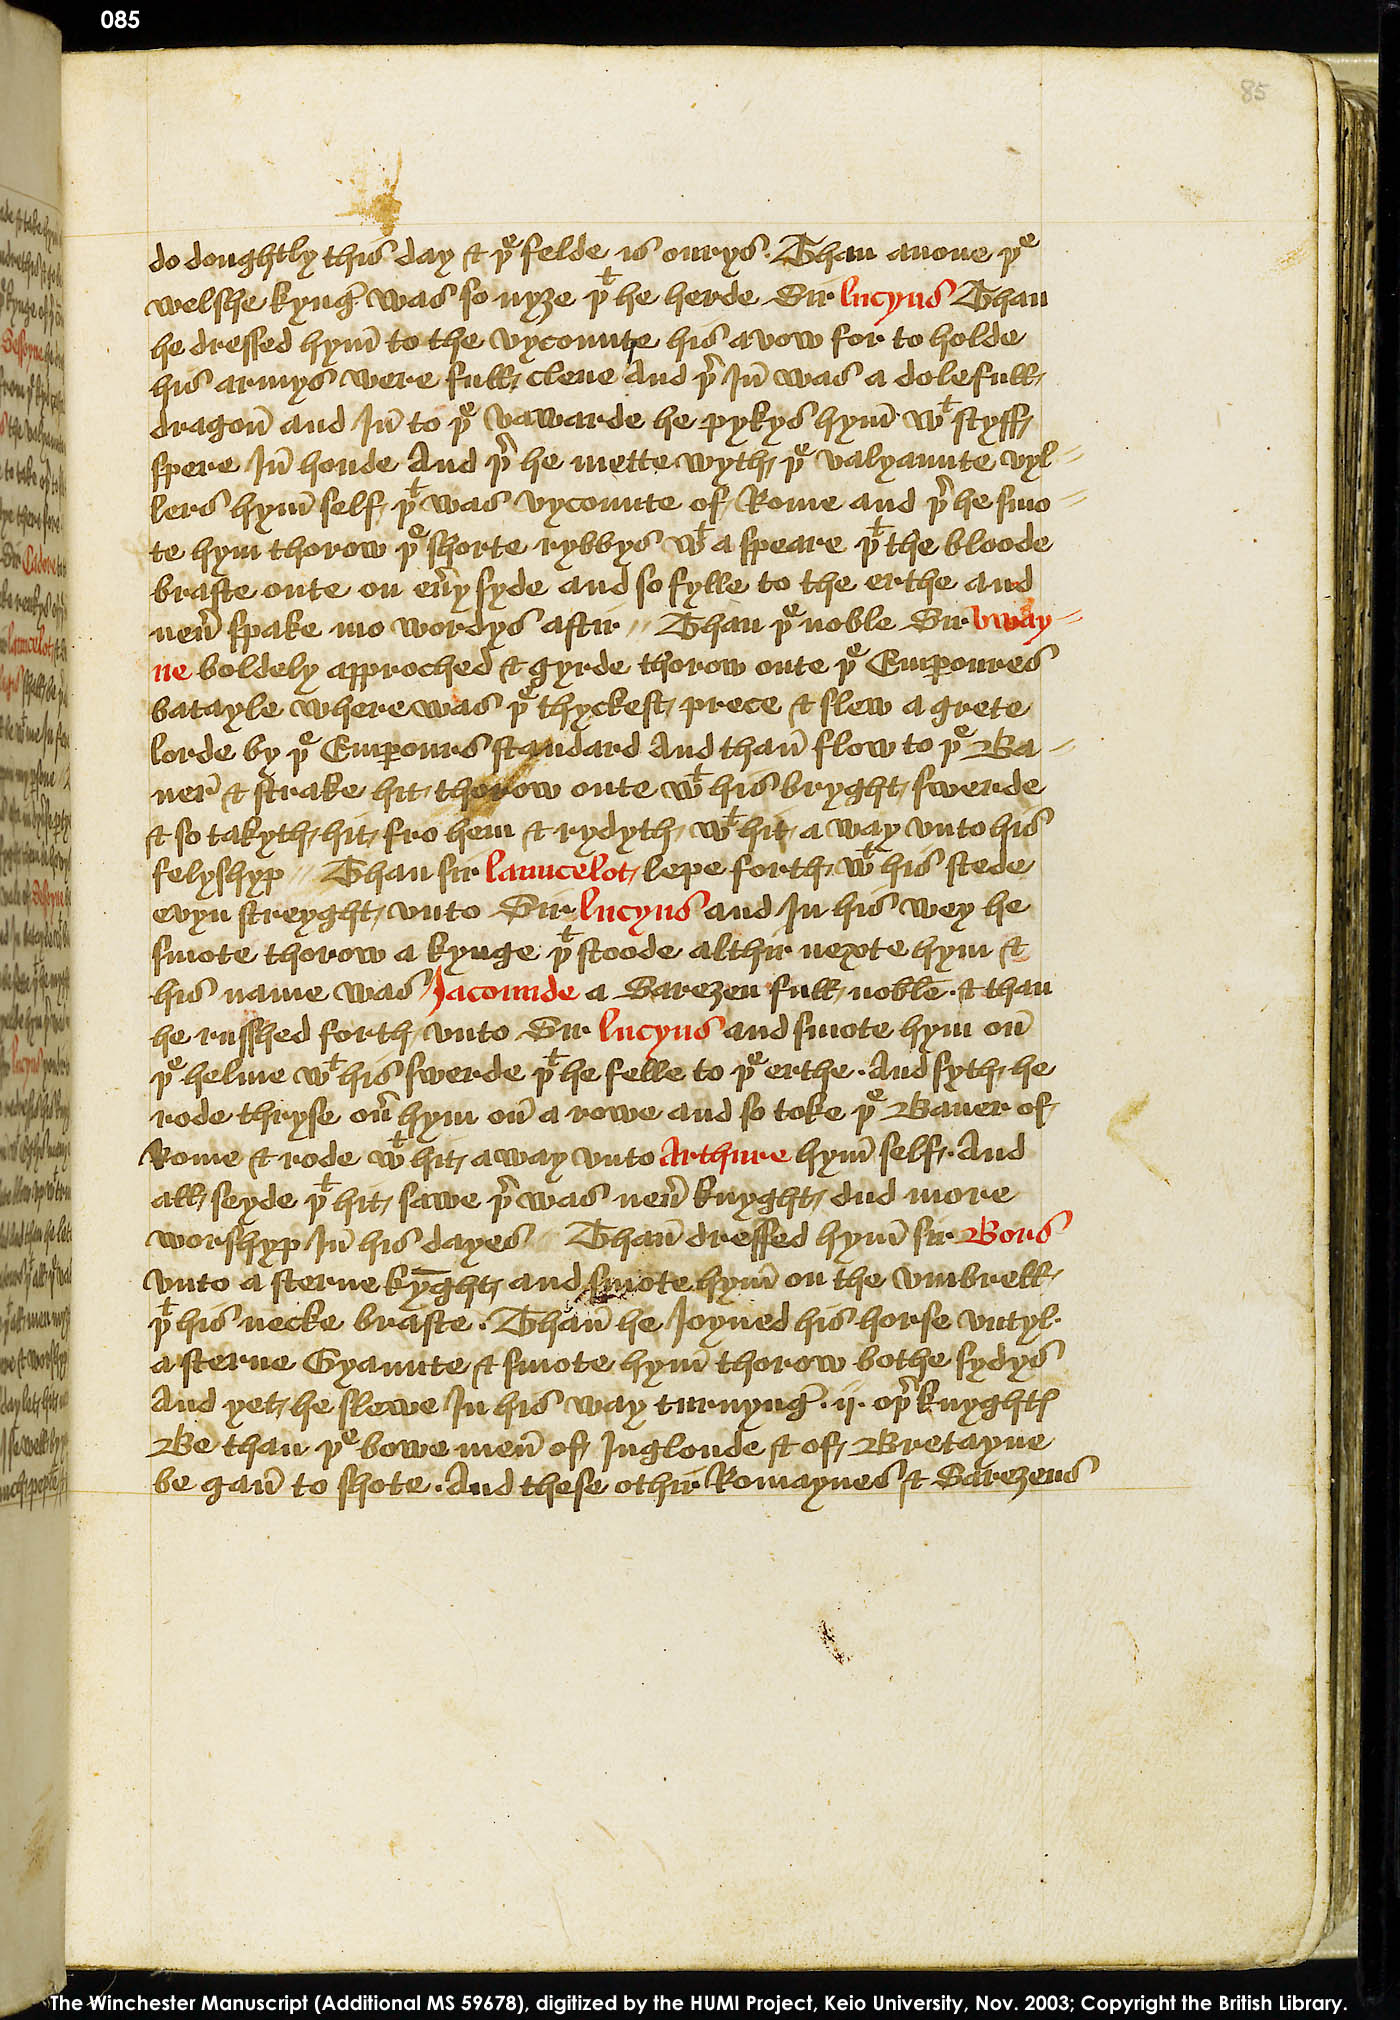 085
85
do doughtly this day & þᵉ felde is ourys . Than anone þᵉ
welsche kyng̛ was so nyȝe þᵗ he herde Sir lucyus Than
he dressed hym̄ to the vycounte his avow for to holde
his armys were full clene And þʳ In̄ was a dolefull
dragon̄ and In̄ to þᵉ vawarde he pykys hym̄ wᵗ styff
spere In̄ honde And þʳ he mette wyth þᵉ valyaunte vyl=
lers hym̄ self þᵗ was vycounte of Rome and þʳ he smo=
te hym thorow þᵉ shorte rybbys wᵗ a speare þᵗ the bloode
braste oute on eu̾y syde and so fylle to the erthe and
neu̾ spake mo wordys aftir // Than þᵉ noble Sir vway=
ne boldely approched & gyrde thorow oute þᵉ Emp̲oures
batayle where was þᵉ thyckest prece & slew a grete
lorde by þᵉ Emp̲ours standard And than̄ flow to þᵉ Ba=
ner̄ & strake hit thorow oute wᵗ his bryght swerde
& so takyth hit fro hem & rydyth wᵗ hit a way vnto his
felyshyp // Than sir launcelot lepe forth wᵗ his stede
evyn streyght vnto Sir lucyus and In his wey he
smote thorow a kynge þᵗ stoode althir nexte hym &
his name was Jacounde a Sarezen full noble . & than
he russhed forth vnto Sir lucyus and smote hym on̄
þᵉ helme wᵗ his swerde þᵗ he felle to þᵉ erthe . And syth he
rode thryse ou̾ hym on̄ a rowe and so toke þᵉ Baner of
Rome & rode wᵗ hit a way vnto Arthure hym̄ self . And
all seyde þᵗ hit sawe þʳ was neu̾ knyght dud more
worshyp In̄ his dayes // Than̄ dressed hym̄ sir Bors
vnto a sterne kȳght and smote hym̄ on the vmbrell
þᵗ his necke braste . Than̄ he Joyned his horse vntyl.
a sterne Gyaunte & smote hym̄ thorow bothe sydys
And yet he slewe In his way turnyng̛ . ij . oþʳ knyghtꝭ
Be than þᵉ bowe men̄ of Inglonde & of Bretayne
be gan̄ to shote . And these othir Romaynes & Sarezens
The Winchester Manuscript (Additional MS 59678), digitized by the HUMI Project, Keio University, Nov. 2003; Copyright the British Library.